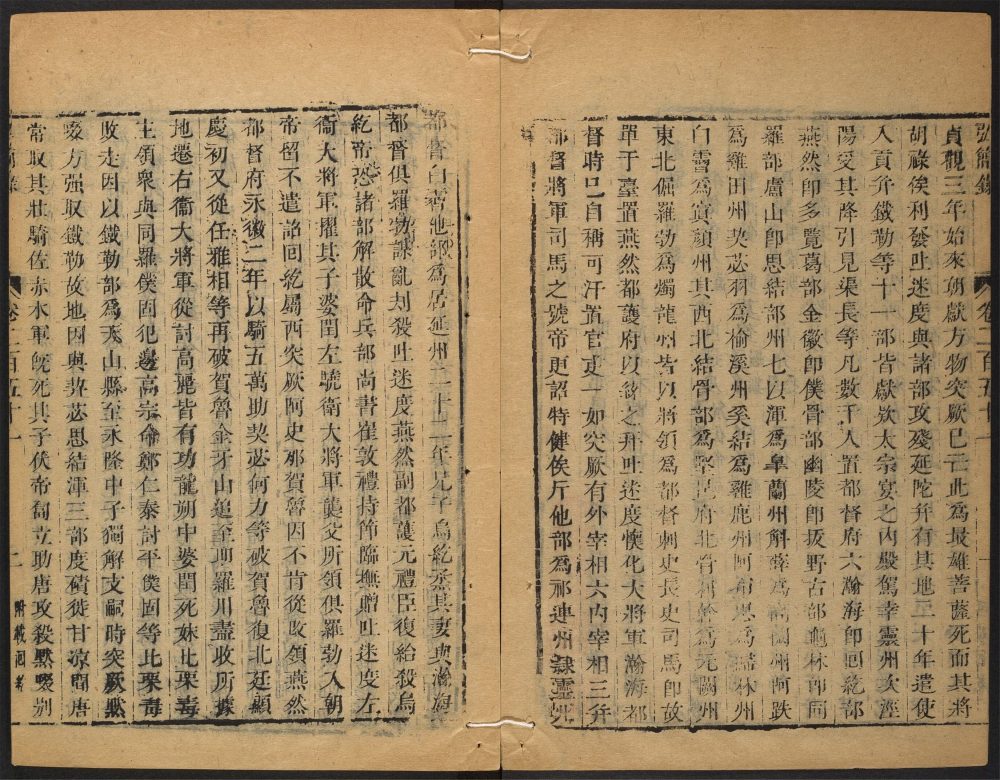 弘簡錄 卷二百五十一
貞觀三年始來朝獻方物突厥已亡此為最雄菩薩死而其將
胡祿俟利發吐迷度與諸部攻殘延陀并有其地二十年遣使
入貢并鐵勒等十一部皆獻欵太宗宴之內殿駕幸靈州次涇
陽受其降引見渠長等凡數千人置都督府六瀚海即回紇部
燕然即多覽葛部金徽即僕骨部幽陵即拔野古部龜林即同
羅部盧山即思結部州七以渾為臯蘭州斛薛為高闕州阿跌
為雞田州契苾羽為榆溪州奚結為雞鹿州阿布思為蹛林州
白霫為寘顏州其西北結骨部為堅昆府北骨利幹為玄闕州
東北俱羅勃為燭龍州皆以將領為都督刺史長史司馬即故
單于臺置燕然都護府以統之拜吐迷度懷化大將軍瀚海都
督時已自稱可汗置官吏一如突厥有外宰相六內宰相三并
都督將軍司馬之號帝更詔特健俟斤他部為祁連州隸靈州
都督白霫他部為居延州二十二年兄子烏紇烝其妻與瀚海
都督俱羅勃謀亂刦殺吐迷度燕然副都護元禮臣復紿殺烏
紇帝恐諸部解散命兵部尚書崔敦禮持節臨撫贈吐迷度左
衛大將軍擢其子婆閏左驍衛大將軍襲父所領俱羅勃入朝
帝留不遣詔回紇屬西突厥阿史那賀魯因不肯從敗領燕然
都督府永徽二年以騎五萬助契苾何力等破賀魯復北廷顯
慶初又從任雅相等再破賀魯金牙山追至耶羅川盡收所據
地遷右衛大將軍從討高麗皆有功龍朔中婆閏死妹比栗毒
主領眾與同羅僕固犯邊高宗命鄭仁泰討平僕固等比栗毒
敗走因以鐵勒部為天山縣至永隆中子獨解支嗣時突厥黙
啜方强取鐵勒故地因與契苾思結渾三部度磧徙甘凉間唐
常取其壯騎佐赤水軍旣死其子伏帝匐立助唐攻殺黙啜別
卷二百五十一 二 附載回紇